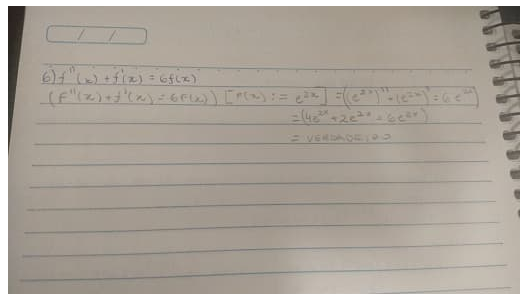 / /
6) f''(x) + f'(x) = 6f(x)
(f''(x) + f'(x) = 6f(x)) [f(x) := e^{2x}] = ((e^{2x})'' + (e^{2x})' = 6e^{2x})
= (4e^{2x} + 2e^{2x} = 6e^{2x})
= VERDADEIRO